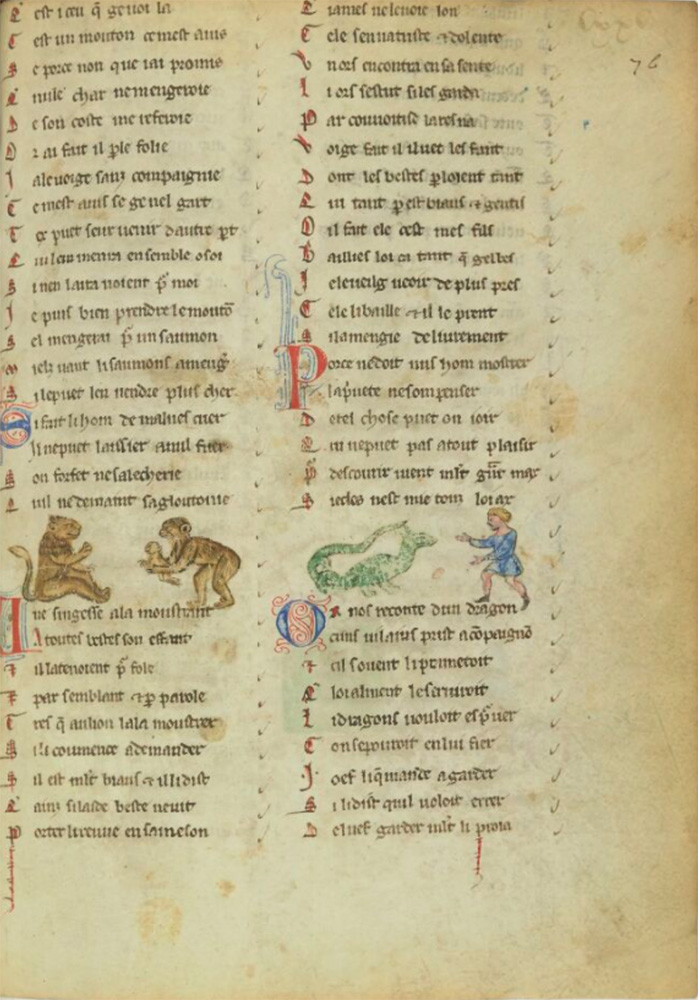 C est ice q̄ ge voi la
C est un mouton ce mest avis
S e por ce non que iai promis
Q nule char ne mengeroie
D e son coste me referoie
O r ai fait il p̱ le folie
I ale voige sanz compaignie
C e mest avis se ge nel gart
T ex puet seur venir dautre p̱t
ensemble o soi
S i nen lairanoient p̱ moi
I e puis bien prendre le moutō
S el mengerai p̱ un saumon
M iels vaut li saumons a meng̕
S il e puet len vendre plus cher
S i fait li hom de malves cuer
Ki ne puet laissier a nul fuer
S on forfet ne sa lecherie
Q uil ne demaint sa gloutonie
U ne singesse ala moustrant
A toutes bestes son enfant
⁊ il la tenoient p̱ fole
E par semblant ⁊ p̱ parole
T res q̄ au lion lala moustrer
S i li coumence a demander
S il est ml̄t biaus ⁊ il li dist
Q ainz si laide beste ne vit
P orter li rueve en sa meson
E iames ne le voie lon
C ele sen va triste ⁊ dolente
V n ors encontra en sa sente
L i ors sestut si les garda
P ar couvoitise laresna
V oige fait il iluec les fant
D ont les bestes p̱loient tant
Q ui tant p̱ est biaus ⁊ gentis
O il fait ele cest mes fils
B aillies loi ca tant q̄ gel bes
I el eveilg veoir de plus pres
C ele li baille ⁊ il le prent
S i la mengie delivrement
P or ce ne doit nus hom mostrer
la p̱vete ne son penser
D e tel chose puet on ioir
Q ui ne puet pas a tout plaisir
P̱ descouvrir vient ml̄t
S iecles nest mie touz loiax
O r nos reconte dun dragon
C uns vilains prist a cōpaignō
⁊ cil sovent li prometoit
Q loialment le serviroit
L i dragons vouloit esp̱ver
C on se pouroit en lui fier
.I. oef li q̄mande a garder
S i li dist quil voloit errer
D el uef garder ml̄t li proia
76